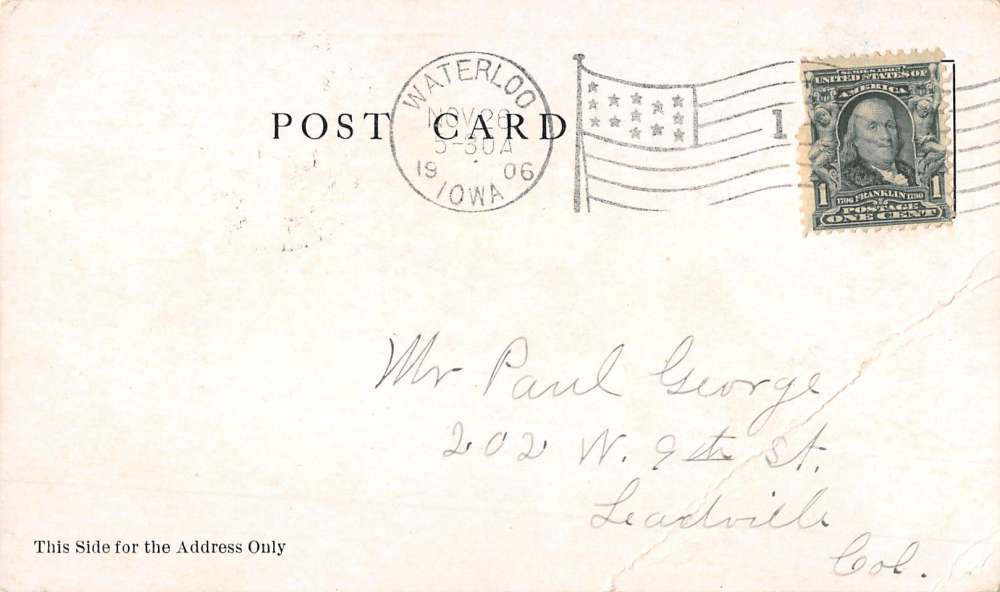 POST CARD
WATERLOO
NOV 26
5-30A
19 06
IOWA
1
SERIES 1902
UNITED STATES OF
AMERICA
1 1
1706 FRANKLIN 1790
POSTAGE
ONE CENT
Mr Paul George
202 W. 9th St.
Leadville
Col.
This Side for the Address Only